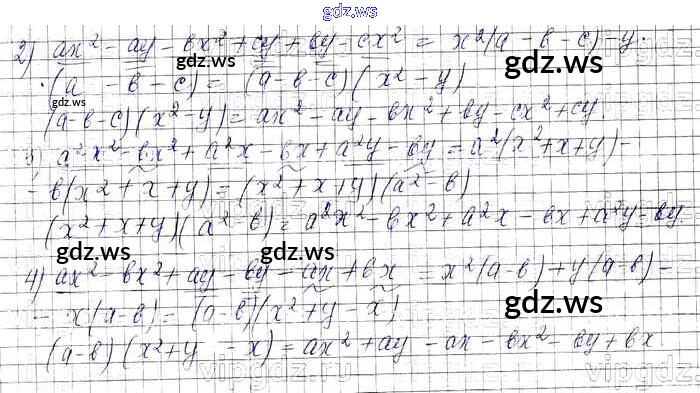 gdz.ws
2) ax² - ay - bx² + cy + by - cx² = x²(a - b - c) - y·
·(a - b - c) = (a - b - c)(x² - y)
(a-b-c)(x²-y) = ax² - ay - bx² + by - cx² + cy
3) a²x² - bx² + a²x - bx + a²y - by = a²(x²+x+y) -
- b(x² + x + y) = (x² + x + y)(a² - b)
(x² + x + y)(a² - b) = a²x² - bx² + a²x - bx + a²y - by.
gdz.ws
gdz.ws
4) ax² - bx² + ay - by - ax + bx = x²(a-b) + y(a-b) -
- x(a-b) = (a-b)(x² + y - x)
(a-b)(x² + y - x) = ax² + ay - ax - bx² - by + bx
gdz.ws
gdz.ws